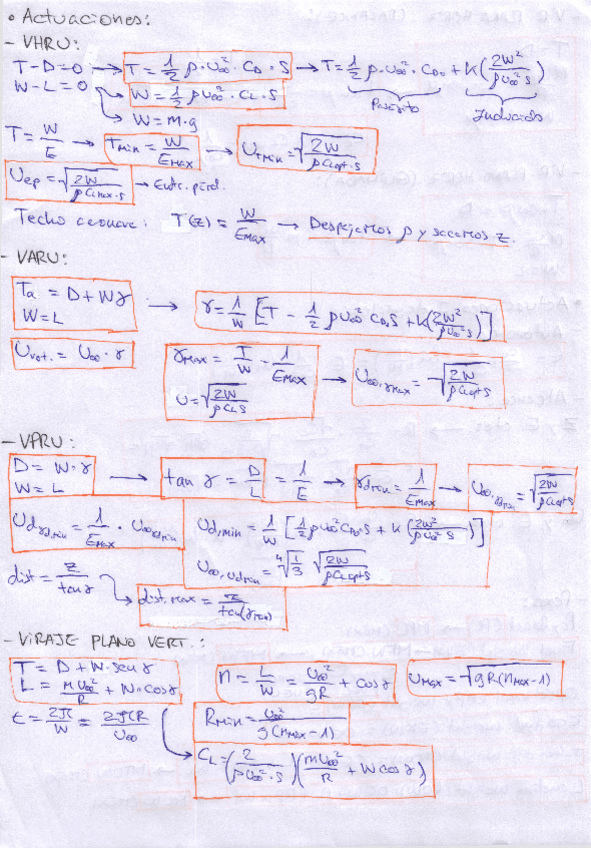 • Actuaciones:
- VHRU:
T-D=0 → T = 1/2 ρ·U∞²·C_D·S → T = 1/2 ρ·U∞²·C_D0 + K(2W²/ρU∞²S)
W-L=0 → W = 1/2 ρU∞²·C_L·S
Parásito Inducido
→ W = m·g
T = W/E → T_min = W/E_MAX → U_Tmin = √(2W/ρC_Lopt·S)
U_ep = √(2W/ρC_LMAX·S) → Entr. pérd.
Techo : T(z) = W/E_MAX → Despejamos ρ y sacamos z.
- VARU:
Ta = D + Wγ → γ = 1/W [T - 1/2 ρU∞²C_D0S + K(2W²/ρU∞²S)]
W = L
U = U∞·γ
γ_MAX = T/W - 1/E_MAX
U = √(2W/ρC_LS) → U∞,γMAX = √(2W/ρC_LoptS)
- VPRU:
D = W·γ → tan γ = D/L = 1/E → γd_min = 1/E_MAX → U∞,γd_min = √(2W/ρC_LoptS)
W = L
Ud_γdmin = 1/E_MAX · U∞_γdmin
Ud,min = 1/W [1/2 ρU∞²C_D0·S + K(2W²/ρU∞²S)]
U∞,Udmin = ∜(1/3) √(2W/ρC_LoptS)
dist = z/tanγ → dist.max = z/tan(γmin)
- VIRAJE PLANO VERT.:
T = D + W·senγ
L = mU∞²/R + W·cosγ
n = L/W = U∞²/gR + cosγ
U_MAX = √(gR(n_MAX-1))
t = 2π/W = 2πR/U∞
R_min = U∞²/g(n_MAX-1)
→ C_L = (2/ρU∞²·S)(mU∞²/R + W cosγ)